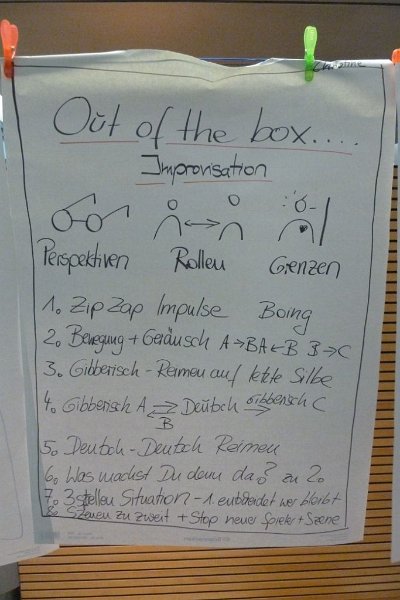 Christine
Out of the box....
Improvisation
Perspektiven Rollen Grenzen
1. Zip Zap Impulse Boing
2. Bewegung + Geräusch A→B A←B B→C
3. Gibberisch - Reimen auf letzte Silbe
4. Gibberisch A ⇄ Deutsch → Gibberisch C
B
5. Deutsch - Deutsch Reimen
6. Was machst Du denn da? zu 2.
7. 3 stellen Situation - 1 entscheidet wer bleibt
8. Szenen zu zweit + Stop neuer Spieler + Szene